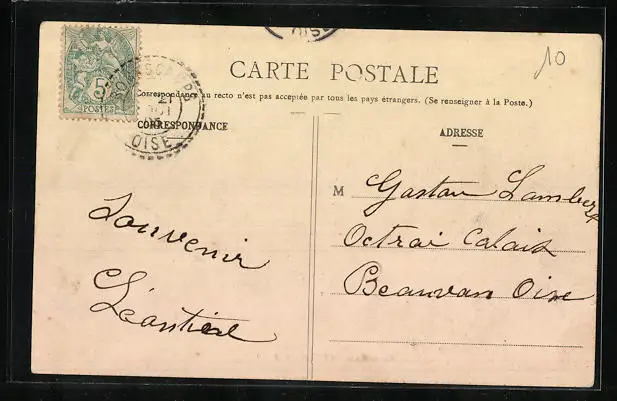 OISE
10
CARTE POSTALE
Correspondance au recto n'est pas acceptée par tous les pays étrangers. (Se renseigner à la Poste.)
5
POSTES
21
OISE
CORRESPONDANCE
ADRESSE
Souvenir
Léontine
M Gaston Lambert
Octrai Calais
Beauvais Oise